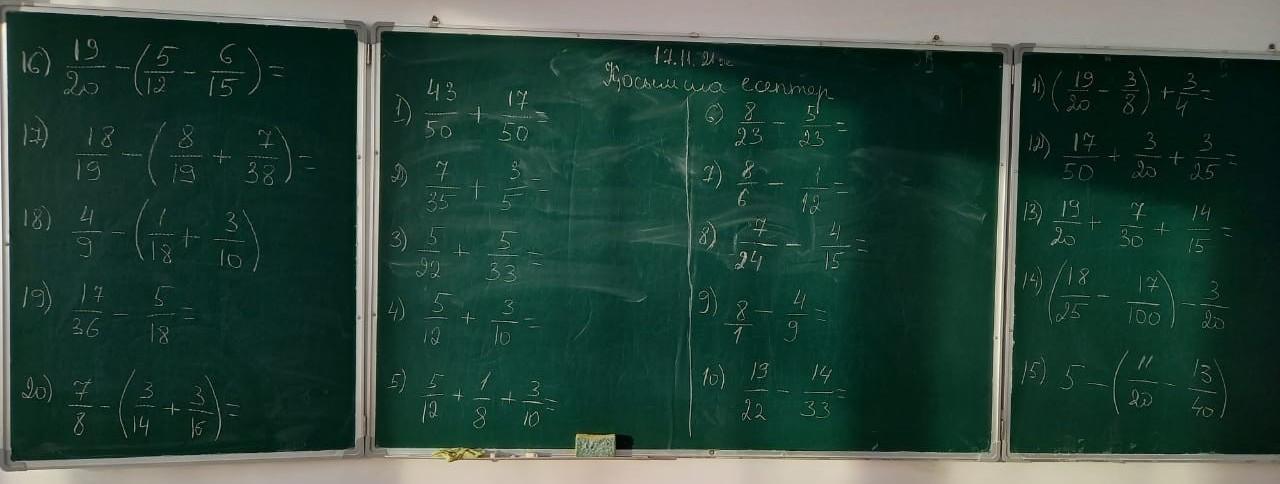 16) 19/20 - (5/12 - 6/15) =
17) 18/19 - (8/19 + 7/38) =
18) 4/9 - (1/18 + 3/10)
19) 17/36 - 5/18 =
20) 7/8 - (3/14 + 3/16) =
17.11.21
Қосымша есептер
1) 43/50 + 17/50 =
2) 7/35 + 3/5 =
3) 5/22 + 5/33 =
4) 5/12 + 3/10 =
5) 5/12 + 1/8 + 3/10 =
6) 8/23 - 5/23 =
7) 8/6 - 1/12 =
8) 7/24 - 4/15 =
9) 8/1 - 4/9 =
10) 19/22 - 14/33 =
11) (19/20 - 3/8) + 3/4 =
12) 17/50 + 3/20 + 3/25 =
13) 19/20 + 7/30 + 14/15 =
14) (18/25 - 17/100) - 3/20
15) 5 - (11/20 - 13/40)